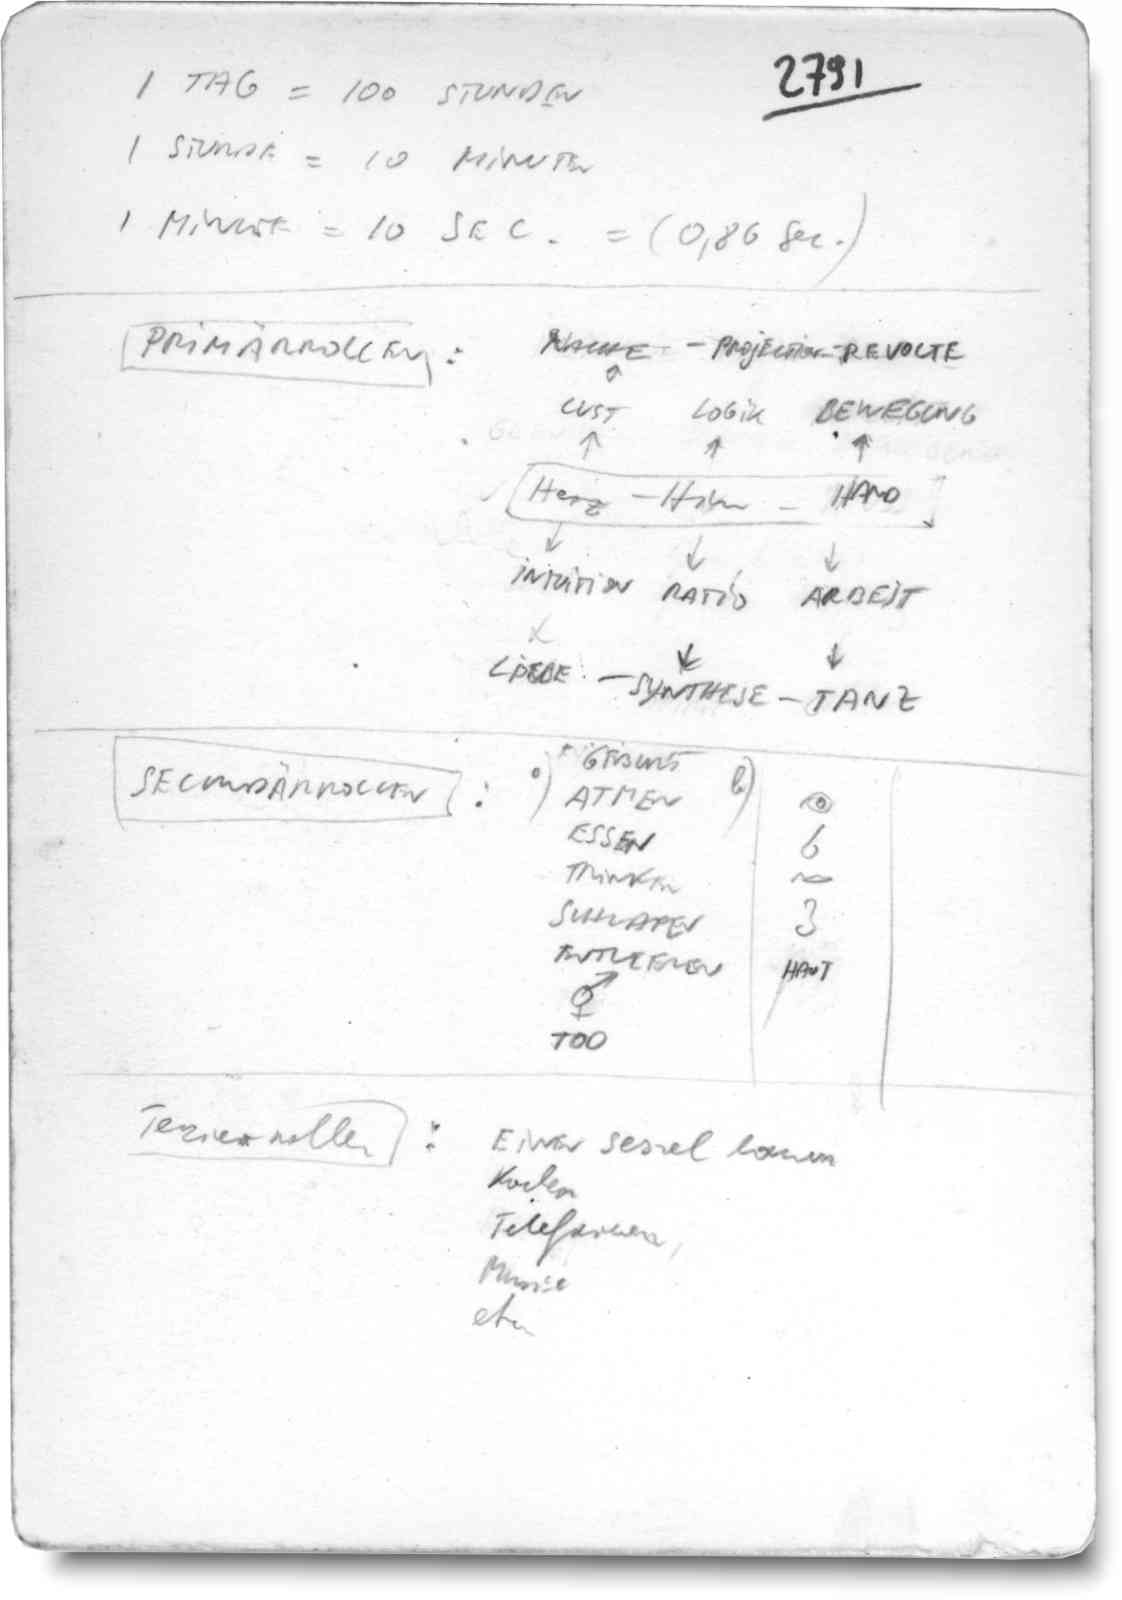 2791
1 TAG = 100 STUNDEN
1 STUNDE = 10 MINUTEN
1 MINUTE = 10 SEC. = (0,86 Sec.)
PRIMÄRROLLEN : - PROJECTION - REVOLTE
LUST LOGIK BEWEGUNG
Herz - Hirn - HAND
INTUITION RATIO ARBEIT
LIEBE - SYNTHESE - TANZ
SECUNDÄRROLLEN : a) GEBURT b)
ATMEN
ESSEN
TRINKEN
SCHLAFEN
ENTLEEREN HAUT
TOD
: EINEN Sessel bauen
Kochen
Telefonieren,
Musik
etc.